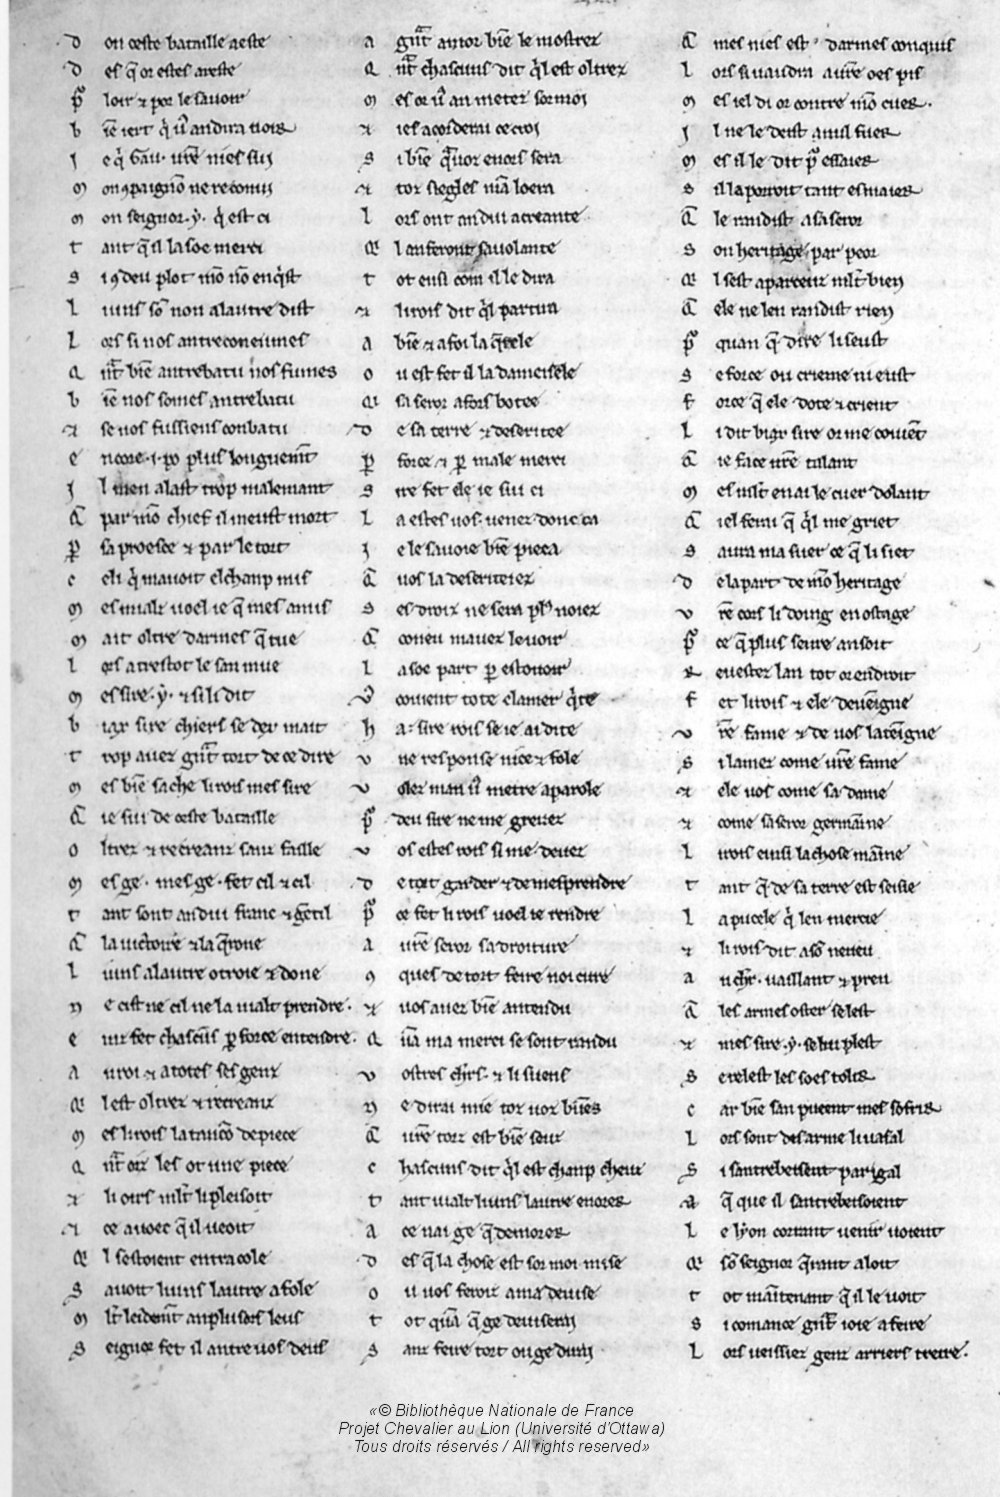 D on ceste bataille aeste
D es q̃ or estes areste
P̃ loir ⁊ por le savoir
B iẽ iert q̃ v̾ an dira voir
J e q̾ Gau. vr̃e nies sui
M on ꝯpaignõ ne reconui
M on seignor .y. q̾ est ci
T ant q̃ il la soe merci
S i ꝯ deu plot mõ nõ enq̃st
L i uns sõ non a lautre dist
L ors si nos antreconeumes
Q̃nt bien antrebatu nos fumes
B iẽ nos somes antrebatu
⁊ se nos fussiens conbatu
E ncore .i. po plus longuemt̃
J l men alast trop malemant
C̃ par mõ chief il meust mort
P̲ sa proesce ⁊ par le tort
C eli q̾ mavoit el chanp mis
M es mialz voel ie q̃ mes amis
M ait oltre darmes q̃ tue
L ors a trestot le san mue
M es sire .y. ⁊ si li dit
B iax sire chiers se dex mait
T rop avez gr̃nt tort de ce dire
M es biẽ sache li rois mes sire
C̃ ie sui de ceste bataille
O ltrez ⁊ recreanz sanz faille
M es ge. mes ge. fet cil ⁊ cil
T ant sont andui franc ⁊ gẽtil
C̃ la victoire ⁊ la q̃rone
L i uns a lautre otroie ⁊ done
N e cist ne cil ne la vialt prendre.
E inz fet chascũs p̲ force entendre.
A u roi ⁊ a totes ses genz
Q̃ l est oltrez ⁊ recreanz
M es li rois la tancõ depiece
Q̃nt oiz les ot une piece
⁊ li oirs mlt̃ li pleisoit
⁊ ce avoec q̃ il veoit
Q̃ l sestoient entracole
S avoit li uns lautre afole
M lt̃ leidemt̃ an plusors leus
S eignor fet il antre vos deus
A gr̃nt amor biẽ le mostrez
Q̃nt chascuns dit q̃l est oltrez
M es or v̾ an metez sor moi
⁊ ies acorderai ce croi
S i biẽ q̃ vor enors sera
⁊ toz siegles mã loera
L ors ont andui acreante
Q̃ l an feront sa volante
T ot ensi com il le dira
⁊ li rois dit q̃l partira
A biẽ ⁊ a foi la q̃rele
O u est fet il la dameisele
Q̃ sa seror a fors botee
D e sa terre ⁊ deseritee
P̲ force ⁊ p̲ male merci
S ire fet ele ie sui ci
L a estes vos. venez donc ca
J e le savoie biẽ pieca
C̃ vos la deseriteiez
S es droiz ne sera pl̾ noiez
C̃ coneu mavez le voir
L a soe part p̲ estovoir
V̾ covient tote clamer q̾te
H a. sire rois se ie ai dite
V ne response nice ⁊ fole
V olez man v̾ metre a parole
P̃ deu sire ne me grevez
V os estes rois si me devez
D e tort garder ⁊ de mesprendre
P̃ ce fet li rois voel ie rendre
A vr̃e seror sa droiture
C ques de tort feire noi cure
⁊ vos avez biẽ antendu
Q̃ ã ma merci se sont randu
V ostres chr̃s. ⁊ li suens
N e dirai mie toz voz buẽs
C̃ vr̃e torz est biẽ seuz
C hascuns dit q̃l est chanp cheuz
T ant vialt li uns lautre enorer
A ce nai ge q̃ demorer
D es q̃ la chose est sor moi mise
O u vos feroiz a ma devise
T ot quãq̃ ge deviserai
S anz feire tort ou ge dirai
C̃ mes nies est darmes conquis
L ors si vaudra a vr̃e oes pis
M es iel di or contre mõ cuer.
J l ne le deist a nul fuer
M es il le dit p̃ essaier
S il la porroit tant esmaier
C̃ le randist a sa seror
S on heritage par peor
Q̃ l sest aparceuz mlt̃ bien
C̃ ele ne len randist rien
P̃ quan q̃ dire li seust
S e force ou crieme ni eust
F orce q̃ ele dote ⁊ crient
L i dit biax sire or me coviẽt
C̃ ie face vr̃e talant
M es mlt̃ en ai le cuer dolant
C̃ iel ferai q̃ q̃l me griet
S aura ma suer ce q̃ li siet
D e la part de mõ heritage
V r̃e cors li doing en ostage
P̃ ce q̃ plus seure an soit
R evester lan tot orendroit
F et li rois ⁊ ele deveigne
V r̃e fame ⁊ de vos la teigne
S i lamez come vr̃e fame
⁊ ele vos come sa dame
⁊ come sa seror germaine
L i rois einsi la chose maĩne
T ant q̃ de sa terre est seisie
L a pucele q̾ len mercie
⁊ li rois dit a sõ neveu
A u chr̃. vaillant ⁊ preu
C̃ les armes oster se lest
⁊ mes sire .y. se lui plest
S e relest les soes tolir
C ar biẽ san pueent mes sofrir
L ors sont desarme li vasal
S i santrebeisent par igal
⁊ q̃ que il santrebeisoient
L e lyon corrant venir voient
Q̃ sõ seignor q̃rant aloit
T ot maĩtenant q̃ il le voit
S i comance gr̃nt ioie a feire
L ors veissiez genz arriers treire.